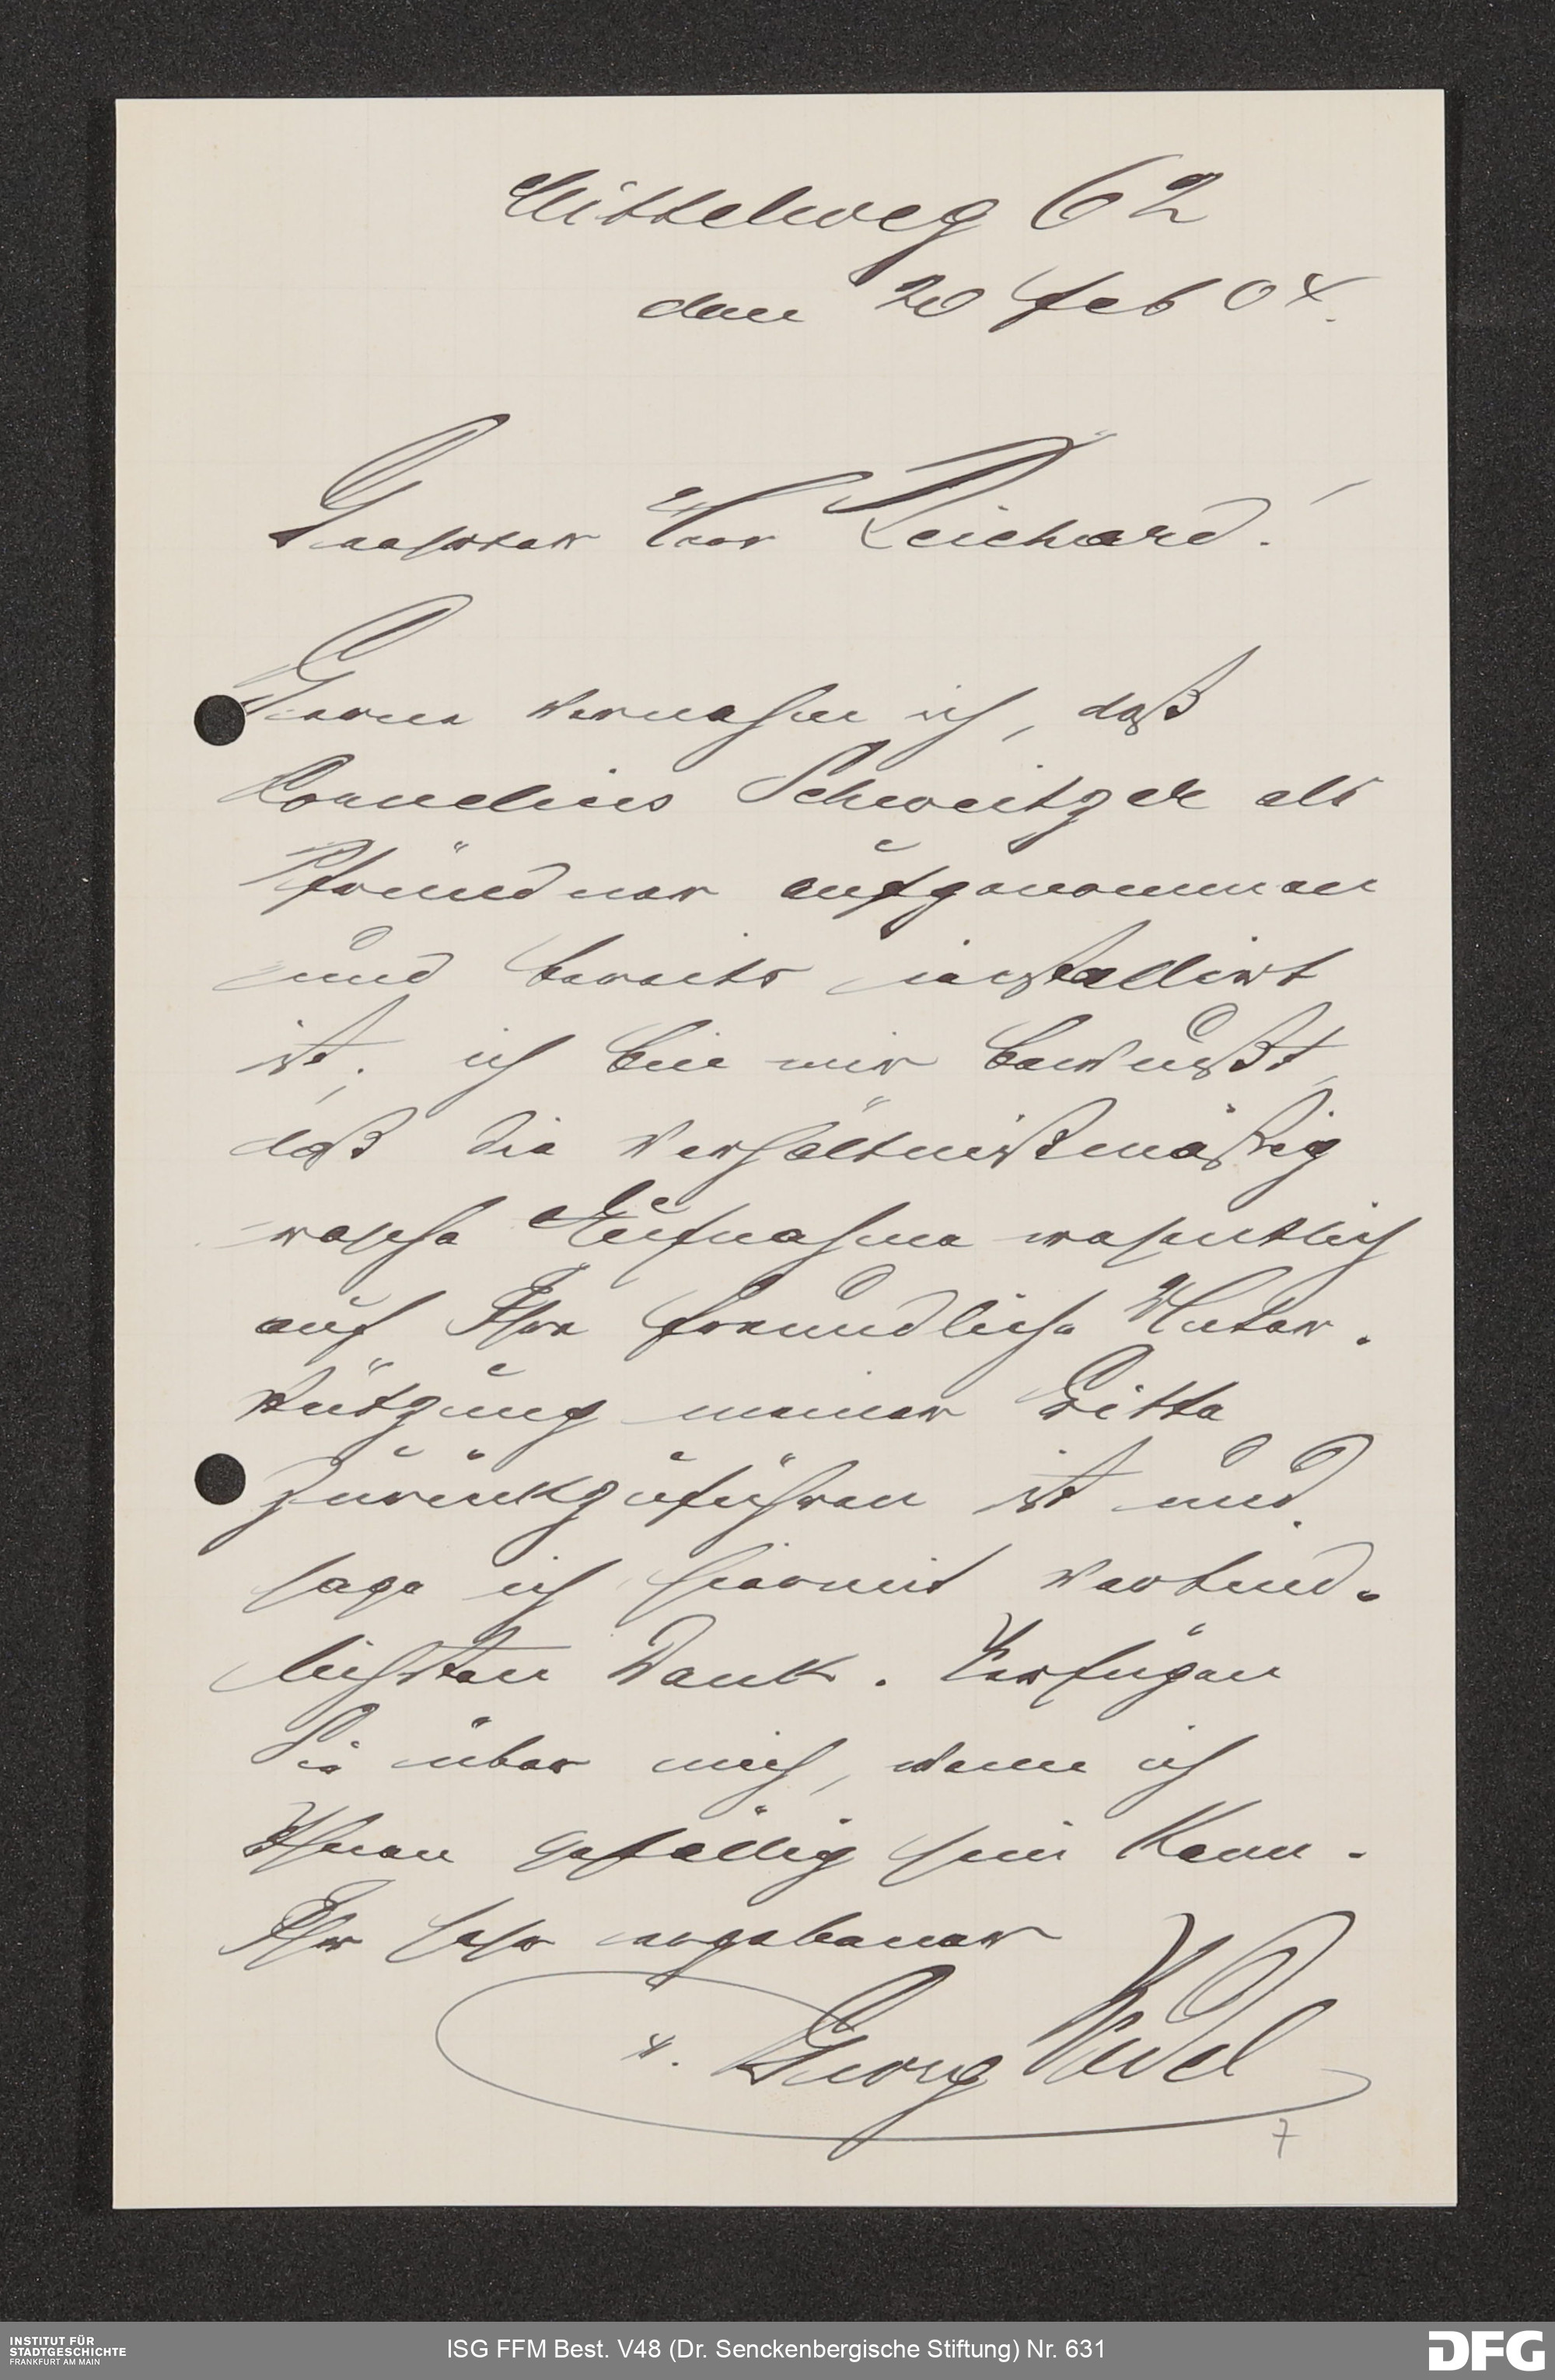 Mittelweg 62
den 20 Feb 04.
Geehrter Herr Reichard!
Gerne vernehme ich, daß
Cornelius Schweitzer als
Pfründner aufgenommen
und bereits installirt
ist, ich bin mir bewußt,
daß die verhältnißmäßig
rasche Aufnahme wesentlich
auf Ihre freundliche Unter-
stützung meiner Bitte
zurückzuführen ist und
sage ich hiermit verbind-
lichsten Dank. Verfügen
Sie über mich, wenn ich
Ihnen gefällig sein kann.
Ihr sehr ergebener
v. Georg
7
INSTITUT FÜR
STADTGESCHICHTE
FRANKFURT AM MAIN
ISG FFM Best. V48 (Dr. Senckenbergische Stiftung) Nr. 631
DFG